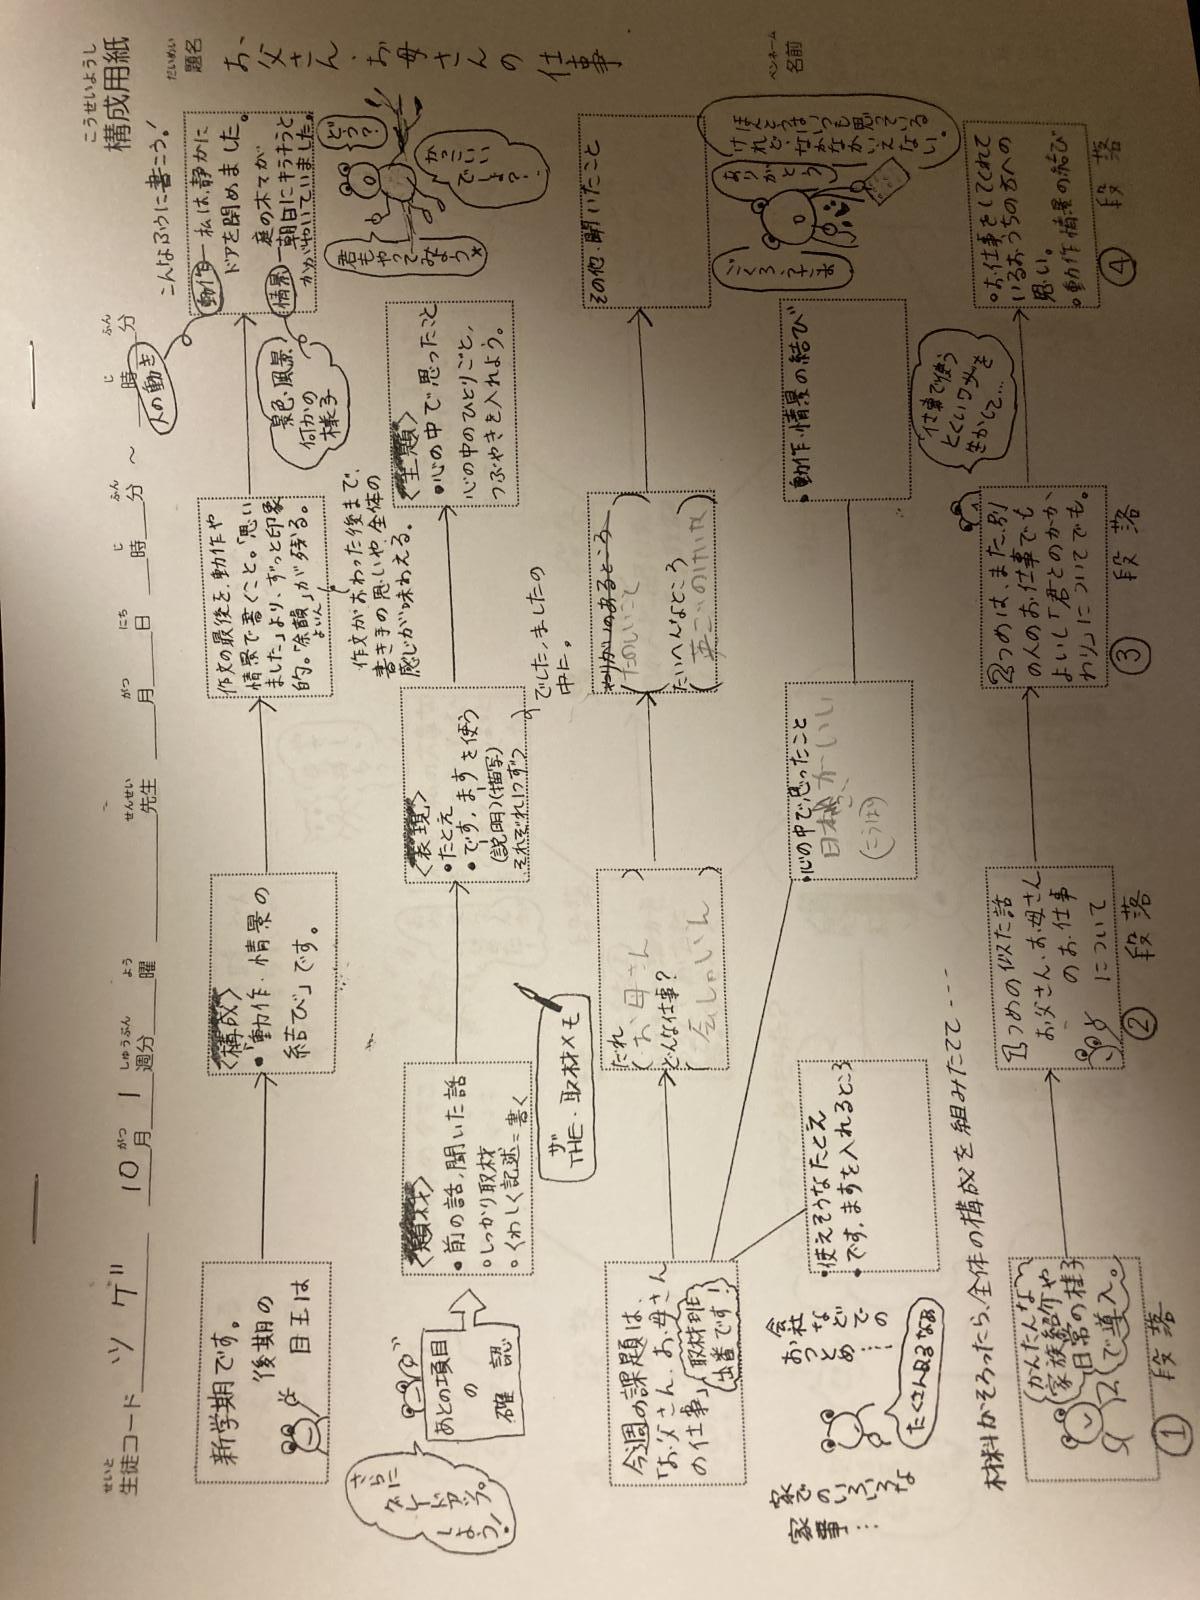 こうせいようし
構成用紙
せいと
生徒コード ツゲ" 10 がつ
月 1 しゅうぶん
週分 よう
曜 せんせい
先生 がつ
月 にち
日 じ
時 ふん
分 ～ じ
時 ふん
分
だいめい
題名
お父さん、お母さんの仕事
ペンネーム
名前
新学期です。
後期の
目玉は
〈構成〉
・「動作・情景の
結び」です。
作文の最後を、動作や
情景で書くこと。「思い
ました」より、ずっと印象
的。「余韻」が残る。
よいん
作文がおわった後まで、
書き手の思いや、全体の
感じが味わえる。
こんなふうに書こう！
動作―私は、静かに
ドアを閉めました。
庭の木々が
情景―朝日にキラキラと
かがやいていました。
人の動き
景色、風景、
何かの
様子
さらに
グレードアップ
しよう！
あとの項目
の
確認
〈題材〉
・前の話、聞いた話
・しっかり取材
・くわしく記述＝書く
〈表現〉
・たとえ
・です。ます を使う
(説明)(描写)
それぞれ1つずつ
でした、ましたの
中に。
〈主題〉
・心の中で思ったこと
心の中のひとりごと、
つぶやきを入れよう。
どう？
かっこいい
でしょ？
君もやって
みよう
ザ
THE・取材メモ
今週の課題は、
「お父さん、お母さん
の仕事」
取材班
出番です！
だれ
(お母さん)
どんな仕事？
(会しゃいん)
やりがいのあるところ
(たのしいこと)
たいへんなところ
その他・聞いたこと
家での
いろいろな
家事…
会社
おつとめ
などでの
…
たくさんあるなぁ
・使えそうなたとえ
・です、ますを入れるところ
・心の中で思ったこと
・動作・情景の結び
ごくろうさま
ありがとう
ほんとうはいつも思っている
けれど、なかなかいえない。
材料がそろったら、全体の構成を組みたてて----
かんたんな
家族紹介や
日常の様子
で導入。
① 段落
1つめの似た話
お父さん、お母さん
のお仕事
について
② 段落
2つめは、また、別
の人のお仕事でも
よいし「君とのかか
わり」についてでも。
③ 段落
仕事で使う
とくいワザを
生かして…
・お仕事をしてくれて
いるおうちの方への
思い。
・動作情景の結び
④ 段落